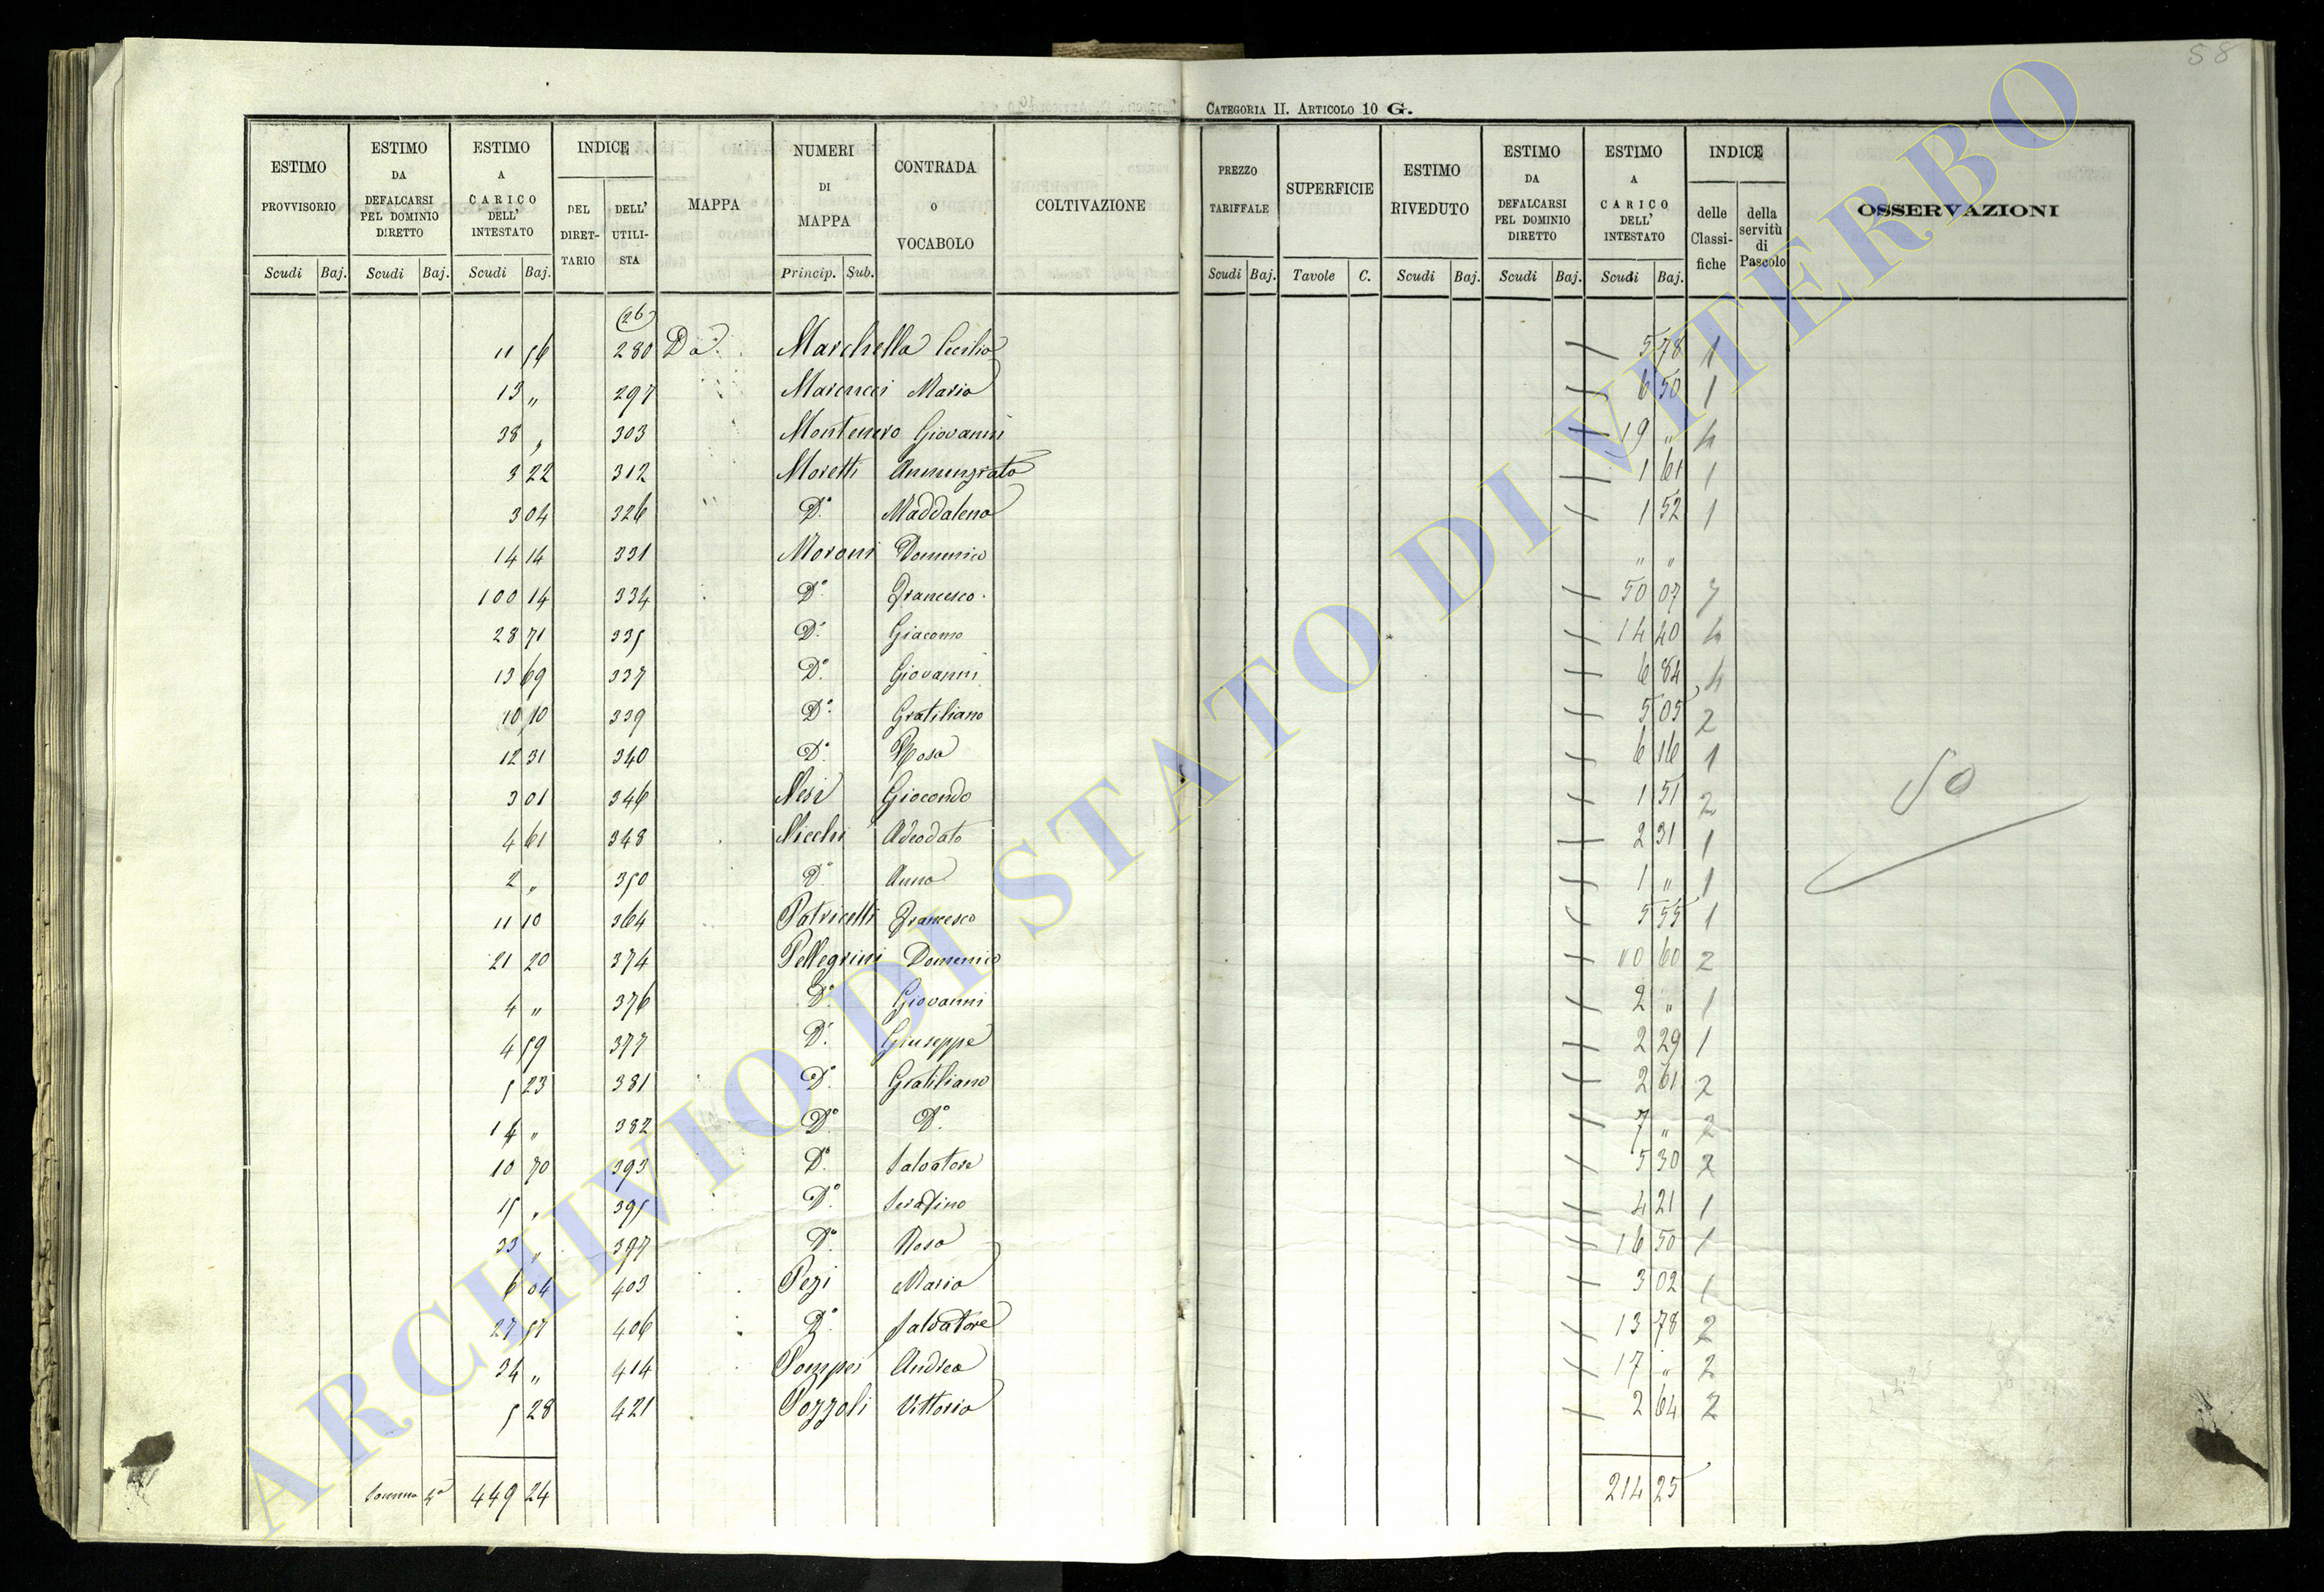 58
CATEGORIA II. ARTICOLO 10 G.
ESTIMO PROVVISORIO | ESTIMO DA DEFALCARSI PEL DOMINIO DIRETTO | ESTIMO A CARICO DELL' INTESTATO | INDICE DEL DIRETTARIO | DELL' UTILISTA | MAPPA | NUMERI DI MAPPA | CONTRADA O VOCABOLO | COLTIVAZIONE | PREZZO TARIFFALE | SUPERFICIE | ESTIMO RIVEDUTO | ESTIMO DA DEFALCARSI PEL DOMINIO DIRETTO | ESTIMO A CARICO DELL' INTESTATO | INDICE delle Classifiche | della servitù di Pascolo | OSSERVAZIONI
Scudi Baj. Scudi Baj. Scudi Baj. Princip. Sub. Scudi Baj. Tavole C. Scudi Baj. Scudi Baj. Scudi Baj.
(26)
11 56 280 Da. Marchella Cecilia 5 78 1
13 „ 297 Marcucci Maria 6 50 1
38 „ 303 Montenero Giovanni 19 „ 4
3 22 312 Moretti Annunziata 1 61 1
3 04 326 D.° Maddalena 1 52 1
14 14 331 Moroni Domenico „ „
100 14 334 D.° Francesco 50 07 3
28 71 335 D.° Giacomo 14 40 4
13 69 337 D.° Giovanni 6 84 4
10 10 339 D.° Gratiliano 5 05 2
12 31 340 D.° Rosa 6 16 1
3 01 346 Nesi Giocondo 1 51 2
4 61 348 Nicchi Adeodato 2 31 1
2 „ 350 D.° Anna 1 „ 1
11 10 364 Patricelli Francesco 5 55 1
21 20 374 Pellegrini Domenico 10 60 2
4 „ 376 D.° Giovanni 2 „ 1
4 59 377 D.° Giuseppe 2 29 1
5 23 381 D.° Gratiliano 2 61 2
14 „ 382 D.° D.° 7 „ 2
10 70 393 D.° Salvatore 5 30 2
15 „ 395 D.° Serafino 4 21 1
33 „ 397 D.° Rosa 16 50 1
6 04 403 Pezi Maria 3 02 1
27 57 406 D.° Salvatore 13 78 2
34 „ 414 Pompei Andrea 17 „ 2
5 28 421 Pozzoli Vittoria 2 64 2
50
214.25
Somma 449 24 214 25
ARCHIVIO DI STATO DI VITERBO